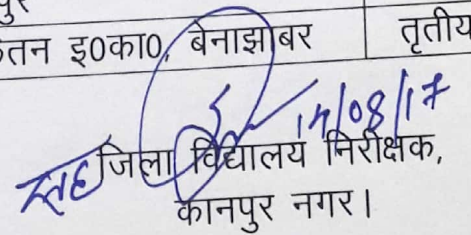 पुर
तन इ०का०, बेनाझाबर तृतीय
14/08/17
सह जिला विद्यालय निरीक्षक,
कानपुर नगर।